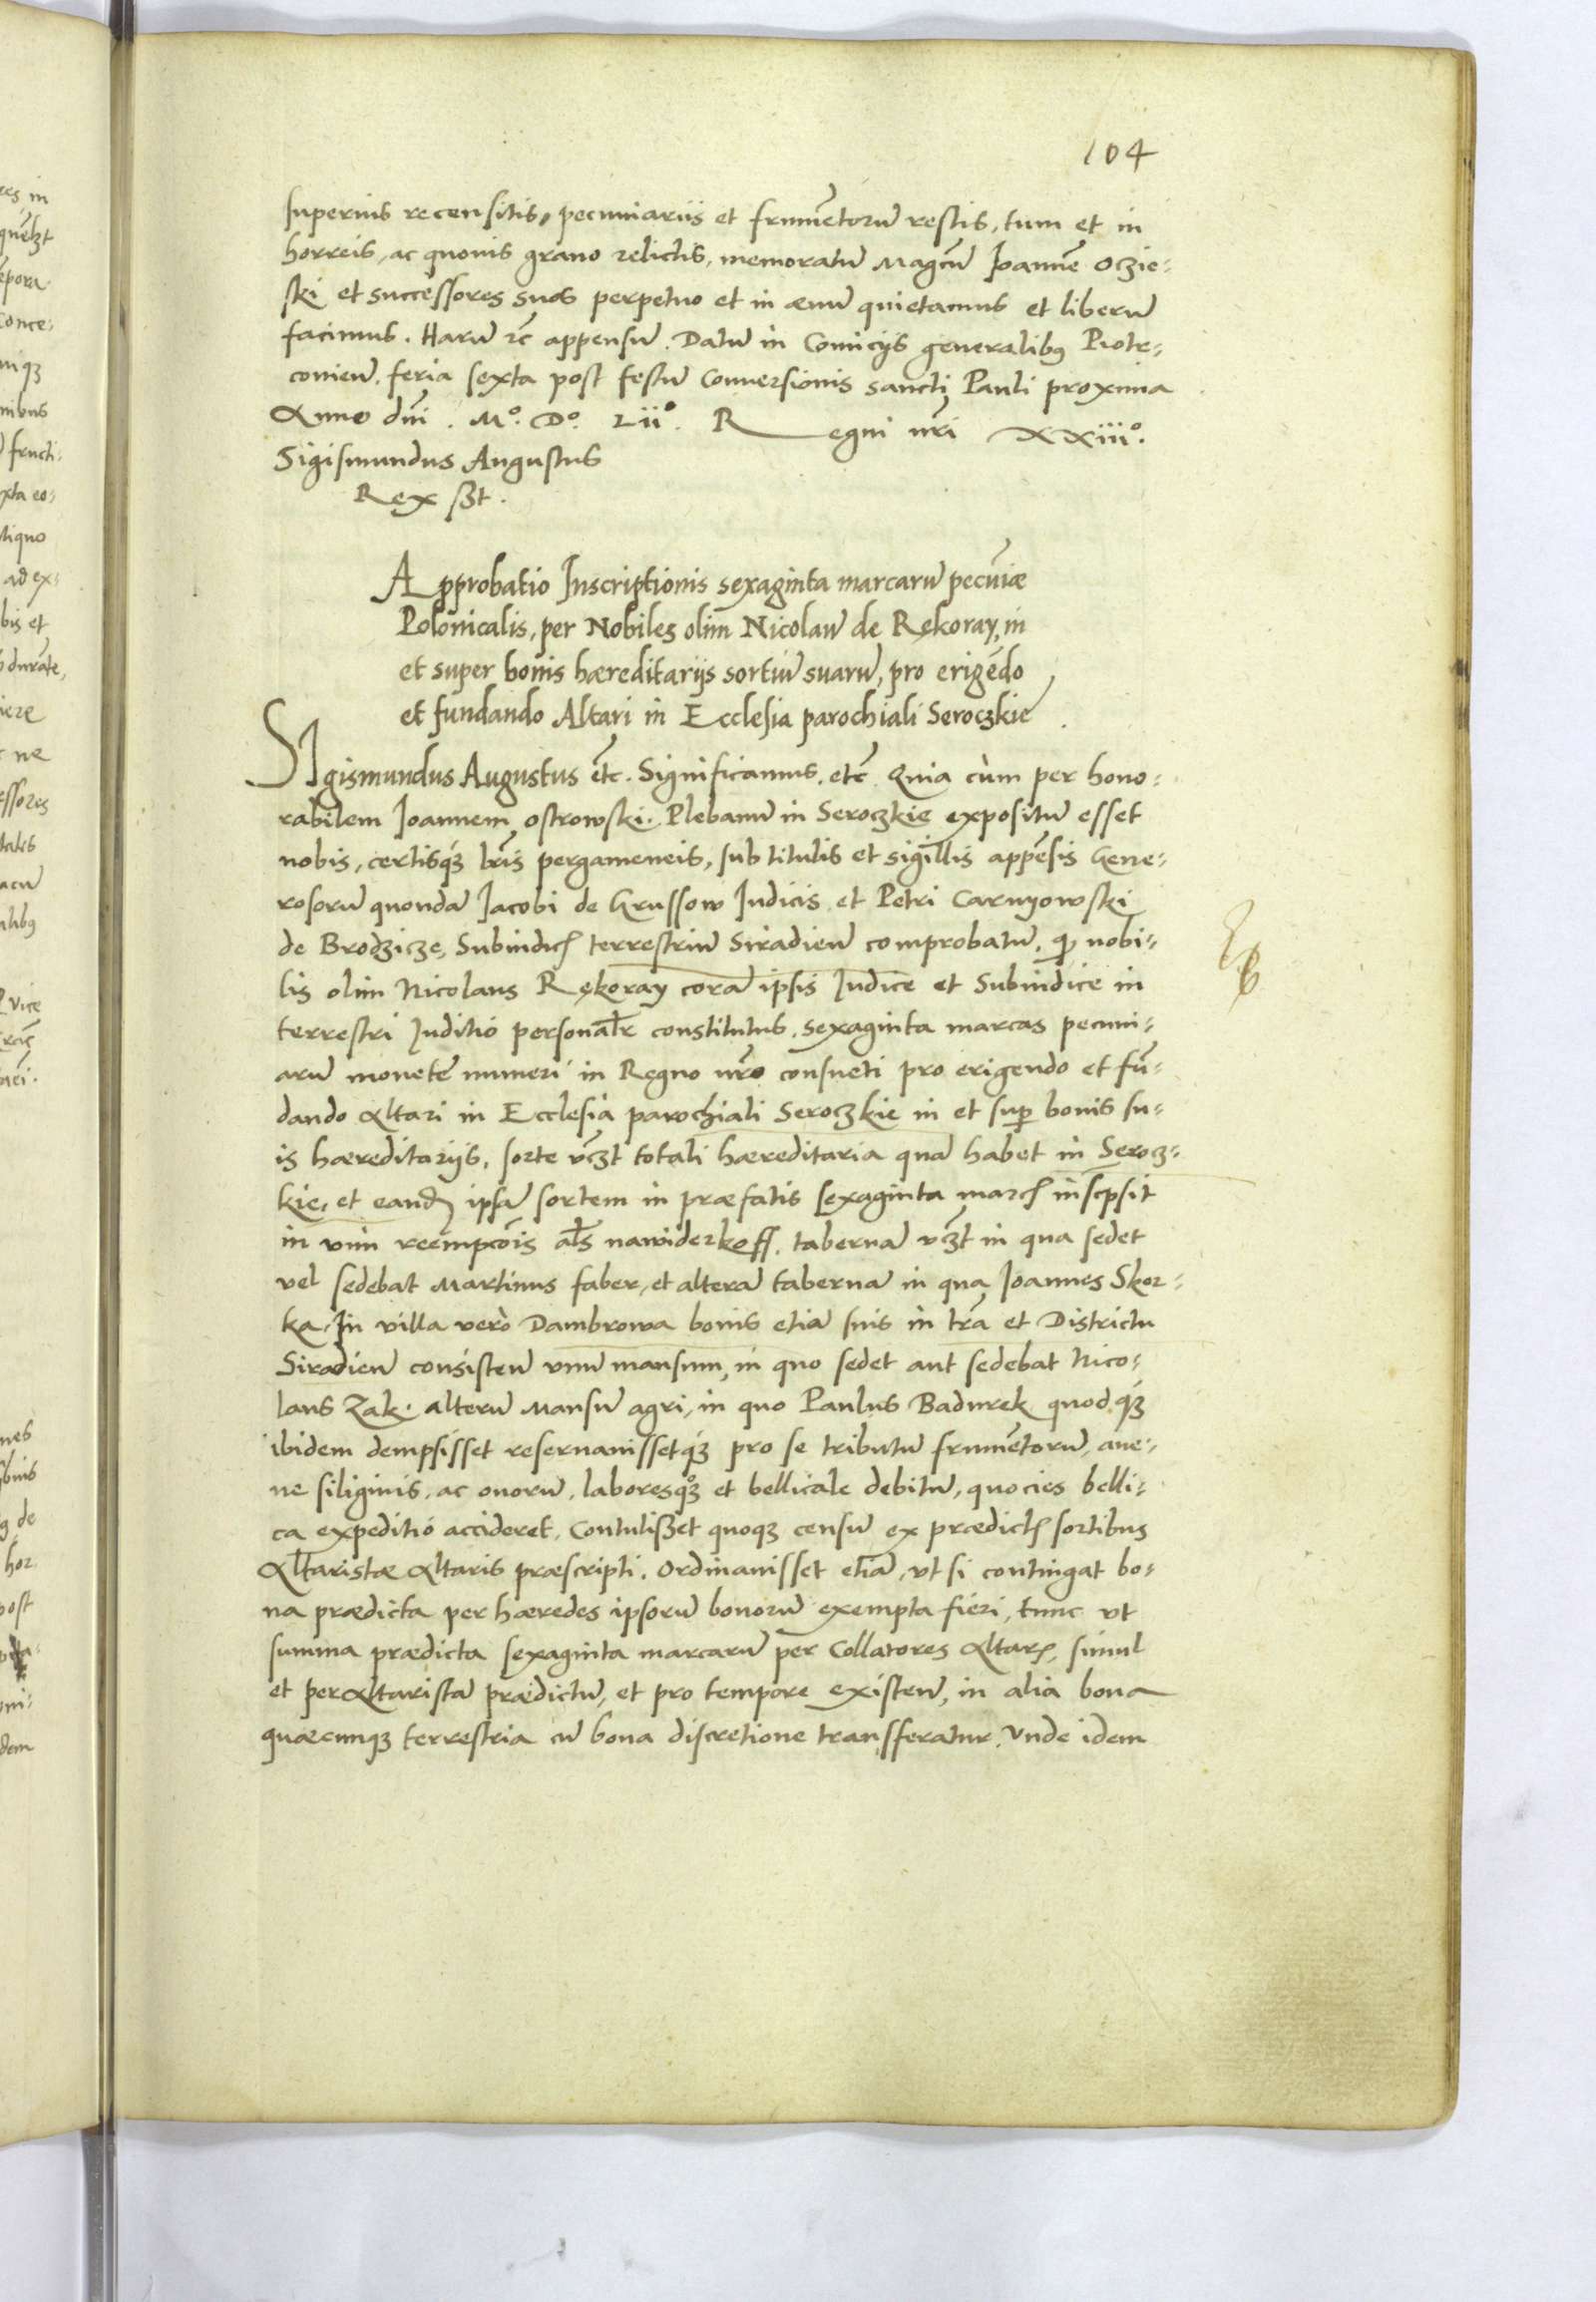 104
superius recensitis, pecuniariis et frumētorū restis, tum et in
horreis, ac quovis grano relictis, memoratū Magcū Joannē Oczie-
ski et successores suos perpetuo et in ævū quietamus et liberū
facimus. Harū rc̄ appensū. Datū in Comicijs generalibꝰ Piotr-
covień. feria sexta post festū Conversionis sancti Pauli proxima
Anno dn̄i. Mº. Dº. Lijº. Regni nr̄i XXiijº.
Sigismundus Augustus
Rex sßt.
Approbatio Inscriptionis sexaginta marcarū pecūiæ
Polonicalis, per Nobiles olim Nicolaū de Rękoray, in
et super bonis hæreditarijs sortiū suarū, pro erigēdo
et fundando Altari in Ecclesia parochiali Seroczkie.
Sigismundus Augustus etc̄. Significamus. etc̄ Quia cùm per hono-
rabilem Joannem ostrowski. Plebanū in Seroczkie expositū esset
nobis, certisqꝫ lr̄is pergameneis, sub titulis et sigillis appēsis Gene-
rosorū quondā Jacobi de Grussow Judicis et Petri Carnyowski
de Brodzicze, Subiudicꝭ terrestriū Siradieū comprobatū, qꝫ nobi-
lis olim Nicolaus Rękoray corā ipsis Judice et Subiudice in
terrestri Juditio personalr̄ constitutus, sexaginta marcas pecuni-
arū monetę numeri in Regno nr̄o consueti pro erigendo et fū-
dando Altari in Ecclesia parochiali Seroczkie in et sup bonis su-
is hæreditarijs, sorte vꝫt totali hæreditaria quā habet in Serocz-
kie, et eandꝫ ipsā sortem in præfatis sexaginta marcꝭ inscpsit
in vim reempcōis al̄s nawiderkoff, tabernā vꝫt in qua sedet
vel sedebat Martinus faber, et alterā tabernā in qua Joannes Skor-
ka, In villa verò Dambrowa bonis etiā suis in tr̄a et Districtu
Siradieū consisteū vnū mansum, in quo sedet aut sedebat Nico-
laus Zak. alterū Mansū agri, in quo Paulus Badurek quodqꝫ
ibidem dempsisset reservavissetqꝫ pro se tributū frumētorū, ave-
ne siliginis, ac ovorū, laboresqꝫ et bellicale debitū, quocies belli-
ca expeditio accideret, Contulisßet quoqꝫ censū ex prædictꝭ sortibus
Altaristæ Altaris præscripti. Ordinavisset etiā, vt si contingat bo-
na prædicta per hæredes ipsorū bonorū exempta fieri, tunc vt
summa prædicta sexaginta marcarū per Collatores Altarꝭ, simul
et per Altaristā prædictū, et pro tempore existeū, in alia bona
quæcunqꝫ terrestria cū bona discretione transferatur. Vnde idem